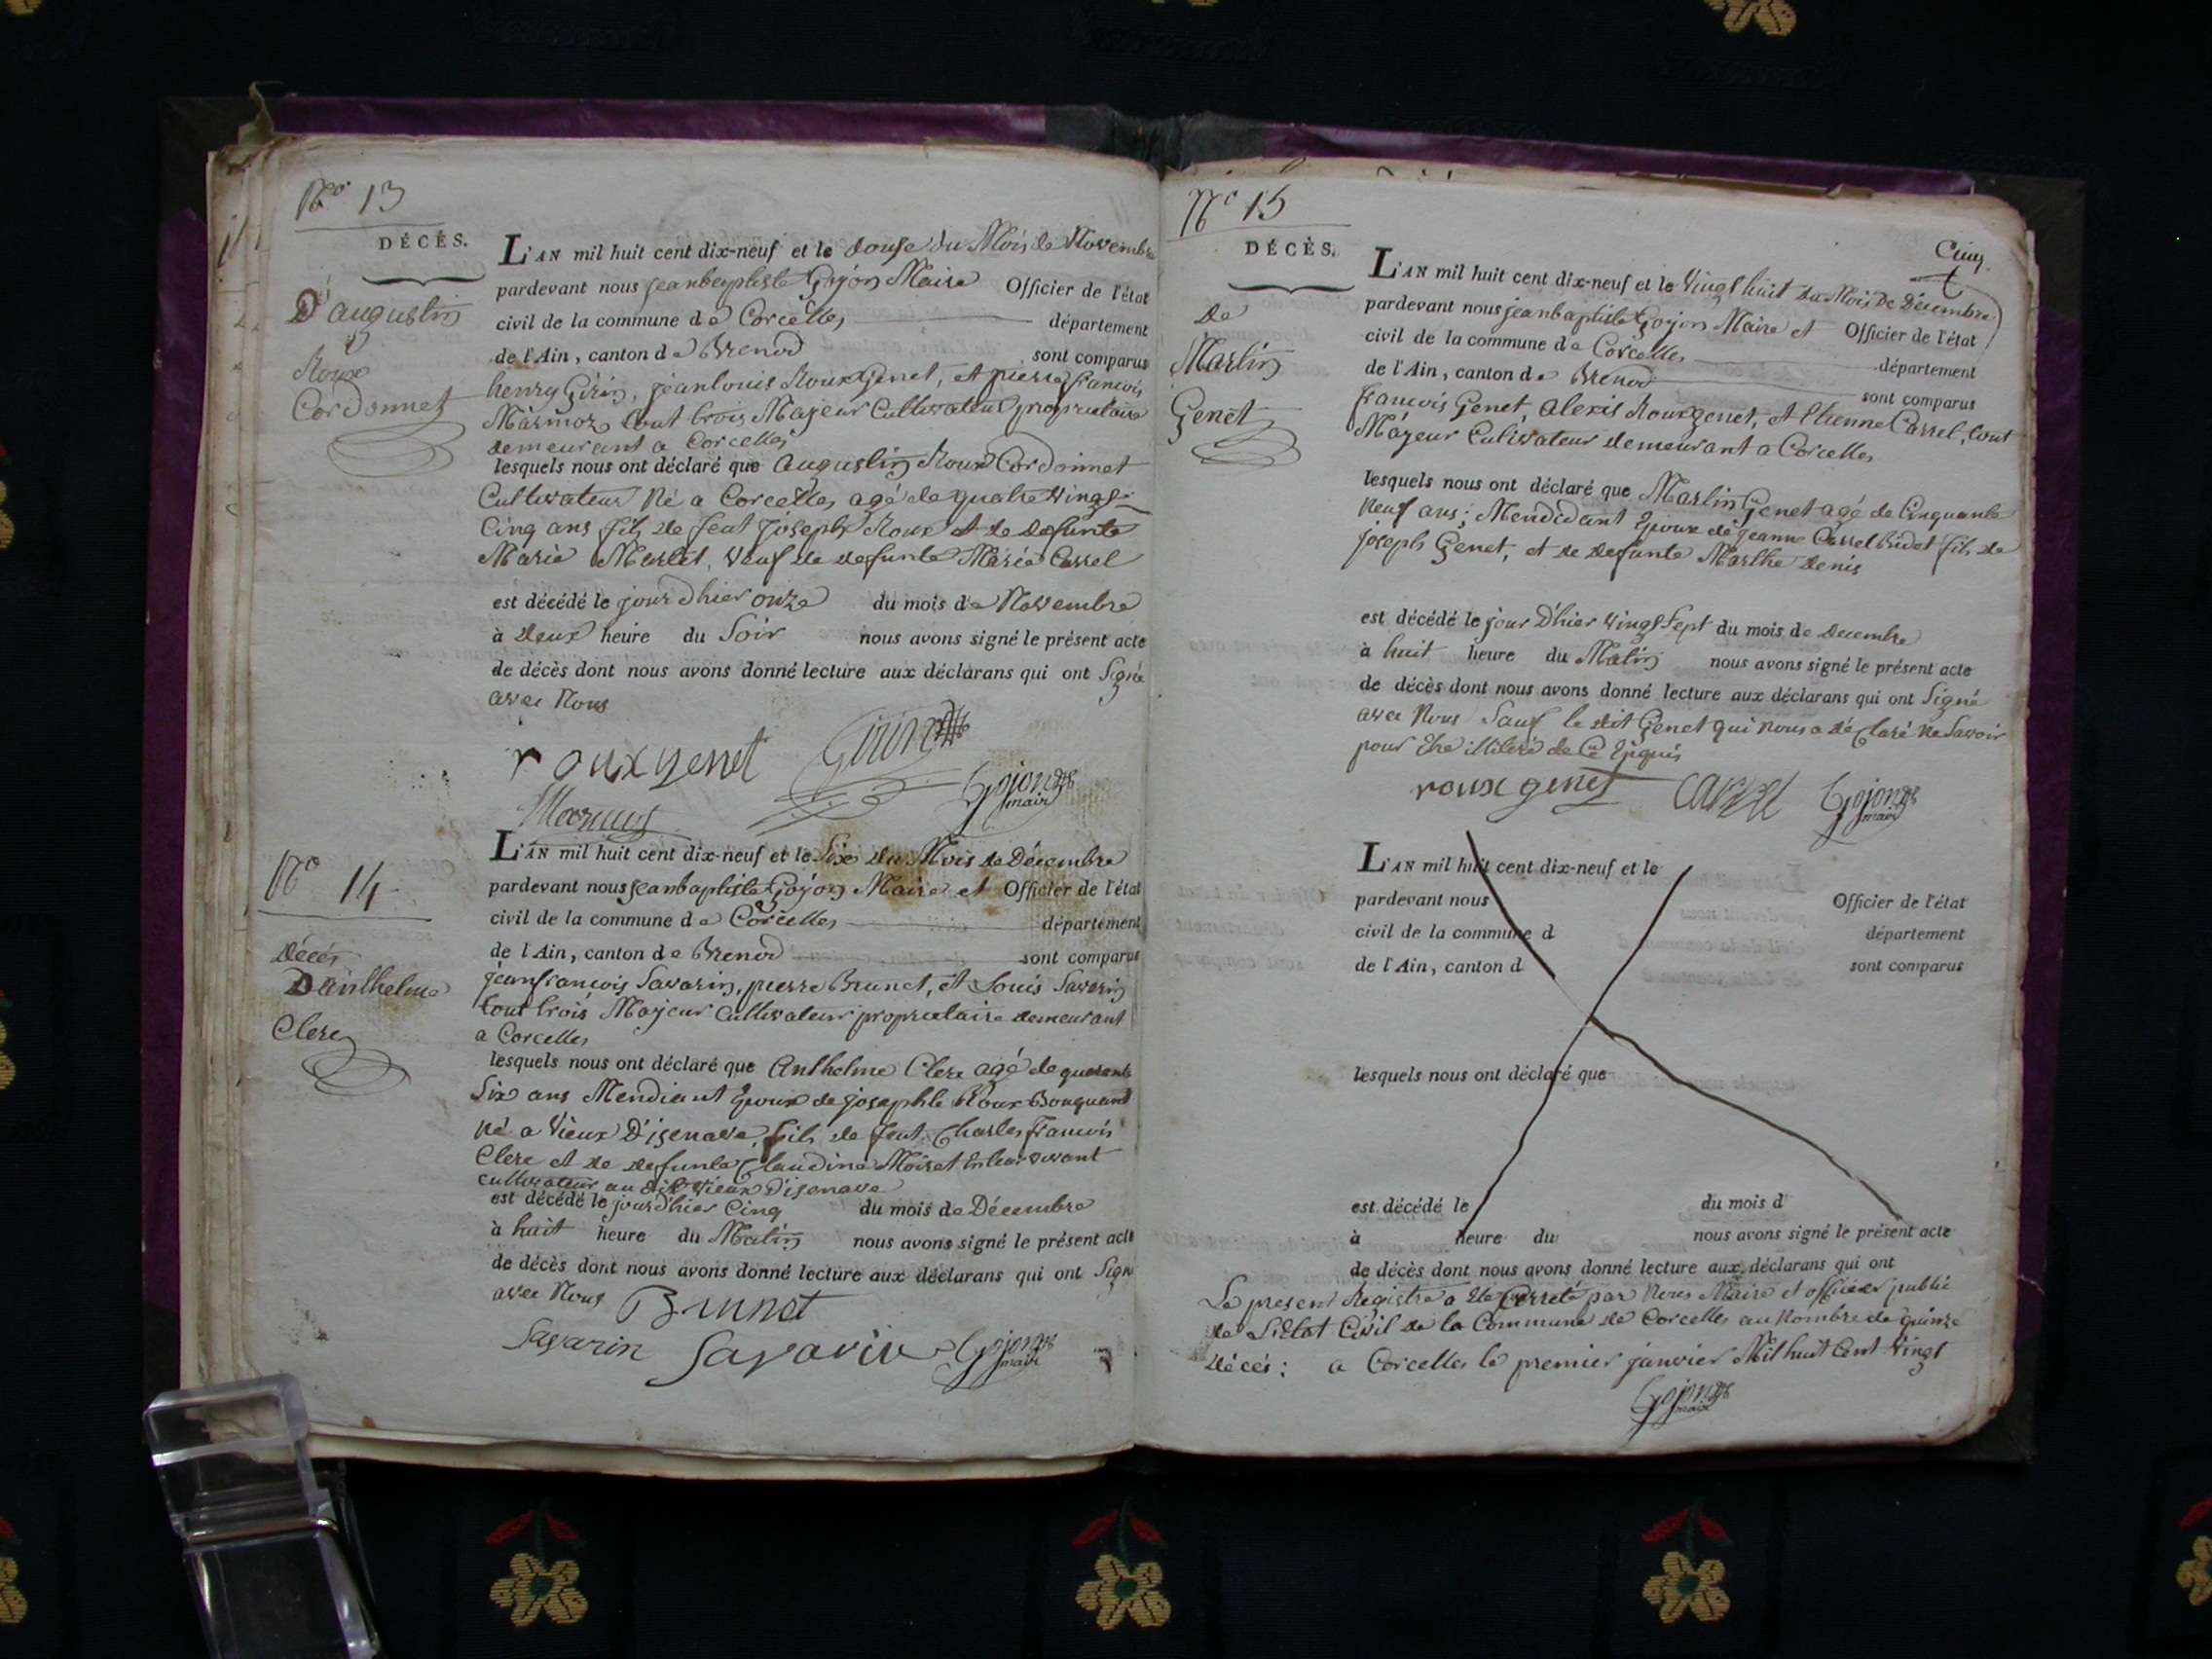 No 13
DÉCÈS.
D'augustin
Roux
Cordonnet
L'AN mil huit cent dix-neuf et le douse du Mois de Novembre
pardevant nous jeanbaptiste Gojon Maire Officier de l'état
civil de la commune de Corcelles département
de l'Ain, canton de Brenod sont comparus
henry Girin, jeanlouis Roux Genet, et pierre francois
Marmoz tout trois Majeur Cultivateur proprietaire
demeurant a Corcelles
lesquels nous ont déclaré que augustin Roux Cordonnet
Cultivateur Né a Corcelles agé de quatre vings
Cinq ans fils de feut joseph Roux et de defunte
Marie Martel, veuf de defunte Marie Carrel
est décédé le jour dhier onze du mois de Novembre
à deux heure du Soir nous avons signé le présent acte
de décès dont nous avons donné lecture aux déclarans qui ont Signé
avec Nous
rouxgenet Girin
Gojon
maire
No 14
Décés
D'anthelme
Clerc
L'AN mil huit cent dix-neuf et le Six du Mois de Décembre
pardevant nous jeanbaptiste Gojon Maire et Officier de l'état
civil de la commune de Corcelles département
de l'Ain, canton de Brenod sont comparus
jeanfrancois Savarin, pierre Brunet, et Louis Savarin
tout trois Majeur Cultivateur propriétaire demeurant
a Corcelles
lesquels nous ont déclaré que Anthelme Clerc agé de quarante
Six ans Mendiant Epoux de josephte Roux Bouquand
né a Vieux D'isenave, fils de feut Charles francois
Clerc et de defunte Claudine Moiret en leur vivant
cultivateur au dit vieux D'isenave
est décédé le jour d'hier Cinq du mois de Décembre
à huit heure du Matin nous avons signé le présent acte
de décès dont nous avons donné lecture aux déclarans qui ont Sign
avec Nous
Brunet
Savarin Savarin Gojon
maire
No 15
DÉCÈS.
de
Martin
Genet
Cinq.
L'AN mil huit cent dix-neuf et le Vingt huit du Mois De Décembre
pardevant nous jeanbaptiste Gojon Maire et Officier de l'état
civil de la commune de Corcelles département
de l'Ain, canton de Brenod sont comparus
francois Genet, alexis Rouxgenet, et Etienne Carrel, tout
Majeur Cultivateur demeurant a Corcelles
lesquels nous ont déclaré que Martin Genet agé de Cinquante
neuf ans; Mendidant Epoux de jeanne Carrel Bridet fils de
joseph Genet, et de defunte Marthe denis
est décédé le jour D'hier vingt Sept du mois de decembre
à huit heure du Matin nous avons signé le présent acte
de décès dont nous avons donné lecture aux déclarans qui ont Signé
avec Nous Sauf le dit Genet qui nous a déclaré ne Savoir
pour Etre illiteré de Ce Enquis
roux genet CARREL Gojon
maire
L'AN mil huit cent dix-neuf et le
pardevant nous Officier de l'état
civil de la commune d département
de l'Ain, canton d sont comparus
lesquels nous ont déclaré que
est décédé le du mois d
à heure du nous avons signé le présent acte
de décès dont nous avons donné lecture aux déclarans qui ont
Le present Registre a Ete par Nous Maire et officier public
de L'Etat Civil de la Commune de Corcelles au Nombre de quinze
décés; a Corcelles le premier janvier Mil huit Cent Vingt
Gojon
maire